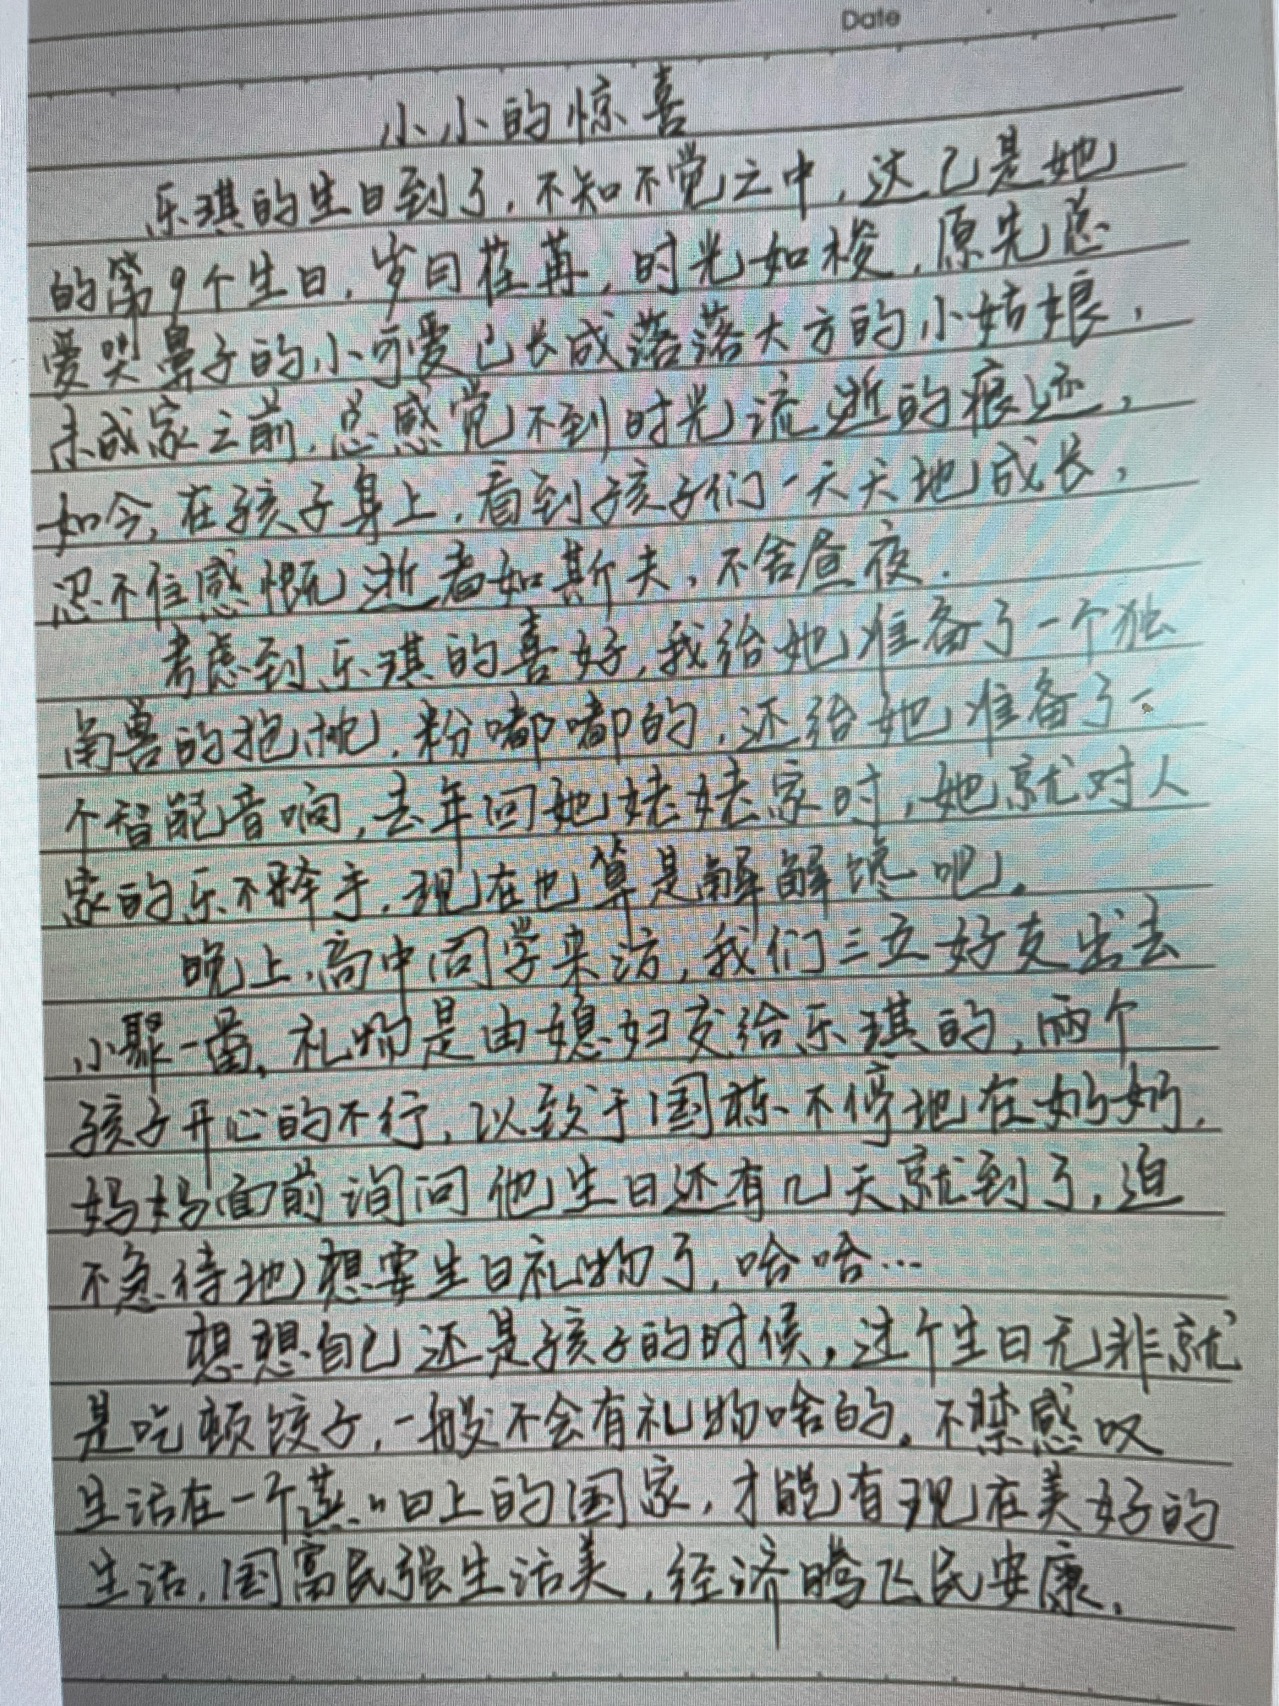 Date
小小的惊喜
乐琪的生日到了，不知不觉之中，这已是她
的第9个生日，岁月荏苒，时光如梭，原先总
爱哭鼻子的小可爱已长成落落大方的小姑娘，
未成家之前，总感觉不到时光流逝的痕迹，
如今，在孩子身上，看到孩子们一天天地成长，
忍不住感慨逝者如斯夫，不舍昼夜．
考虑到乐琪的喜好，我给她准备了一个独
角兽的抱枕，粉嘟嘟的，还给她准备了一
个智能音响，去年回她姥姥家时，她就对人
家的乐不释手，现在也算是解解馋吧。
晚上，高中同学来访，我们三五好友出去
小聚一番，礼物是由媳妇交给乐琪的，两个
孩子开心的不行，以致于国栋不停地在奶奶，
妈妈面前询问他生日还有几天就到了，迫
不急待地想要生日礼物了，哈哈…
想想自己还是孩子的时候，过个生日无非就
是吃顿饺子，一般不会有礼物啥的。不禁感叹
生活在一个蒸〃日上的国家，才能有现在美好的
生活，国富民强生活美，经济腾飞民安康．